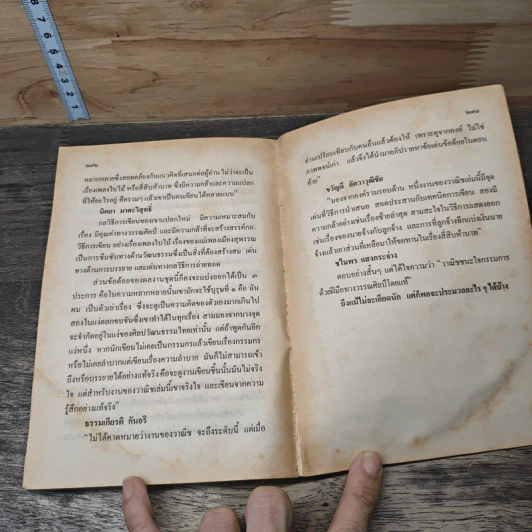 ๒๗๒
หลากหลายซึ่งสอดคล้องกับแนวคิดที่เสนอต่อผู้อ่าน ไม่ว่าจะเป็น
เรื่องเพลงใบไม้ หรือสี่สิบห้าบาท ซึ่งมีความกล้าและความแปลก
ที่ให้อะไรอยู่ คือรวมๆ แล้วเขาเป็นคนเขียนได้หลายแบบ”
นิตยา มาศะวิสุทธิ์
กลวิธีการเขียนของเขาแปลกใหม่ มีความเหมาะสมกับ
เรื่อง มีคุณค่าทางวรรณศิลป์ และมีความกล้าที่จะสร้างสรรค์กล-
วิธีการเขียน อย่างเรื่องเพลงใบไม้ เรื่องของแม่เพลงเมืองสุพรรณ
เป็นการชื่นชับทางด้านวัฒนธรรมซึ่งเป็นสิ่งที่ต้องสร้างสม เด่น
ทางด้านการบรรยาย และเด่นทางกลวิธีการถ่ายทอด
ส่วนข้อด้อยของผลงานชุดนี้ก็คงจะแบ่งออกได้เป็น ๓
ประการ คือในความหลากหลายนั้นเขามักจะใช้บุรุษที่ ๑ คือ ฉัน
ผม เป็นตัวเล่าเรื่อง ซึ่งจะดูเป็นความคิดของตัวเองมากเกินไป
สองในแง่ตลกขบขันซึ่งเขาทำได้ในทุกเรื่อง สามมองจากบางจุด
จะจำกัดอยู่ในแง่ของศิลปวัฒนธรรมไทยเท่านั้น แต่ถ้าพูดกันอีก
แง่หนึ่ง หากนักเขียนไม่เคยเป็นกรรมกรแล้วเขียนเรื่องกรรมกร
หรือไม่เคยลำบากแต่เขียนเรื่องความลำบาก มันก็ไม่สามารถเข้า
ถึงหรือบรรยายได้อย่างแท้จริงคือจะดูงานเขียนชิ้นนั้นมันไม่จริง
ใจ แต่สำหรับงานของวาณิชเล่มนี้เขาจริงใจ และเขียนจากความ
รู้สึกอย่างแท้จริง”
ธรรมเกียรติ กันอริ
“ไม่ได้คาดหมายว่างานของวาณิช จะถึงระดับนี้ แต่เมื่อ
๒๗๓
อ่านเปรียบเทียบกับคนอื่นแล้วต้องให้ เพราะดูจากองค์ ไม่ใช่
ภาพพจน์เก่า แล้วจึงได้นำมาอภิปรายหาข้อเด่นข้อด้อยในตอน
ท้าย”
ขวัญดี อัตวาวุฒิชัย
“มองจากองค์รวมรอบด้าน หนึ่งงานของวาณิชเล่มนี้มีจุด
เด่นที่วิธีการนำเสนอ สอดประสานกับเทคนิคการเขียน สองมี
ความกล้าอย่างเช่นเรื่องช้ายล่าสุด สามสะใจในวิธีการแสดงออก
เช่นเรื่องของนายจ้างกับลูกจ้าง และการที่ลูกจ้างฉีกแบ่งเงินนาย
จ้างแล้วเกาส่วนที่เหลือมาให้ขอทานในเรื่องสี่สิบห้าบาท”
ชไมพร แสงกระจ่าง
ตอบอย่างสั้นๆ แต่ได้ใจความว่า “วาณิชชนะใจกรรมการ
ด้วยฝีมือทางวรรณศิลป์โดยแท้”
ถึงแม้ไม่ละเอียดนัก แต่ก็พอจะประมวลอะไร ๆ ได้บ้าง